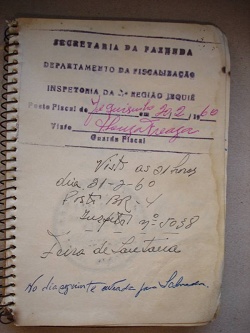 SECRETARIA DA FAZENDA
DEPARTAMENTO DA FISCALIZAÇÃO
INSPETORIA DA 2ª REGIÃO JEQUIÉ
Posto Fiscal de Jequisinho em 20/2/1960
Visto
Guarda Fiscal
Visto as 21 horas
dia 21-2-60
Posto BR-4
nº 5038
Feira de Santana
No dia seguinte